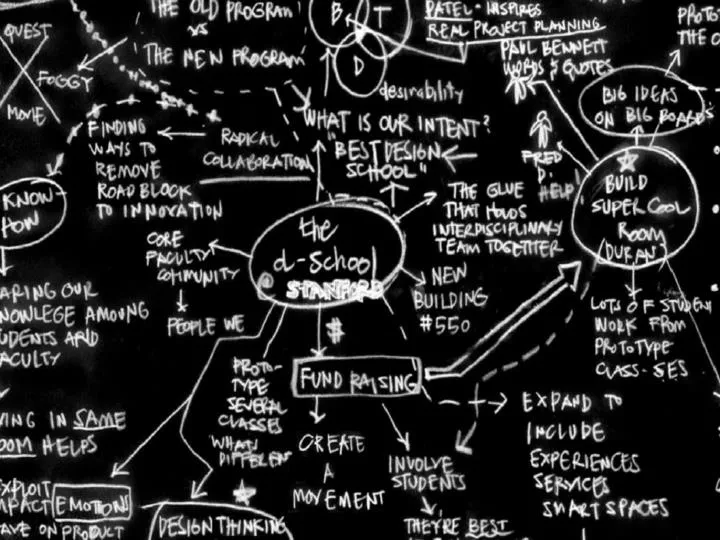 THE OLD PROGRAM
VS
THE NEW PROGRAM
QUEST
FOGGY
MOVIE
B
T
D
desirability
PATEL - INSPIRES
REAL PROJECT PLANNING
PAUL BENNETT
WORDS & QUOTES
PROTO
THE
BIG IDEAS
ON BIG BOARDS
FINDING
WAYS TO
REMOVE
ROAD BLOCK
TO INNOVATION
RADICAL
COLLABORATION
WHAT IS OUR INTENT?
"BEST DESIGN
SCHOOL"
FRED
D.
HELP!
BUILD
SUPER COOL
ROOM
(DURAN)
KNOW-
HOW
THE GLUE
THAT HOLDS
INTERDISCIPLINARY
TEAM TOGETHER
the
d-School
STANFORD
CORE
FACULTY
COMMUNITY
PEOPLE WE
NEW
BUILDING
#550
ARING OUR
NOWLEGE AMOUNG
UDENTS AND
ACULTY
LOTS OF STUDENT
WORK FROM
PROTOTYPE
CLASS-SES
$
FUND RAISING
PROTO-
TYPE
SEVERAL
CLASSES
WHATS
DIFFEREN
CREATE
A
MOVEMENT
INVOLVE
STUDENTS
THEY'RE BEST
EXPAND TO
INCLUDE
EXPERIENCES
SERVICES
SMART SPACES
VING IN SAME
OOM HELPS
EXPLOIT
MPACT EMOTIONS
AVE ON PRODUCT
DESIGN THINKING